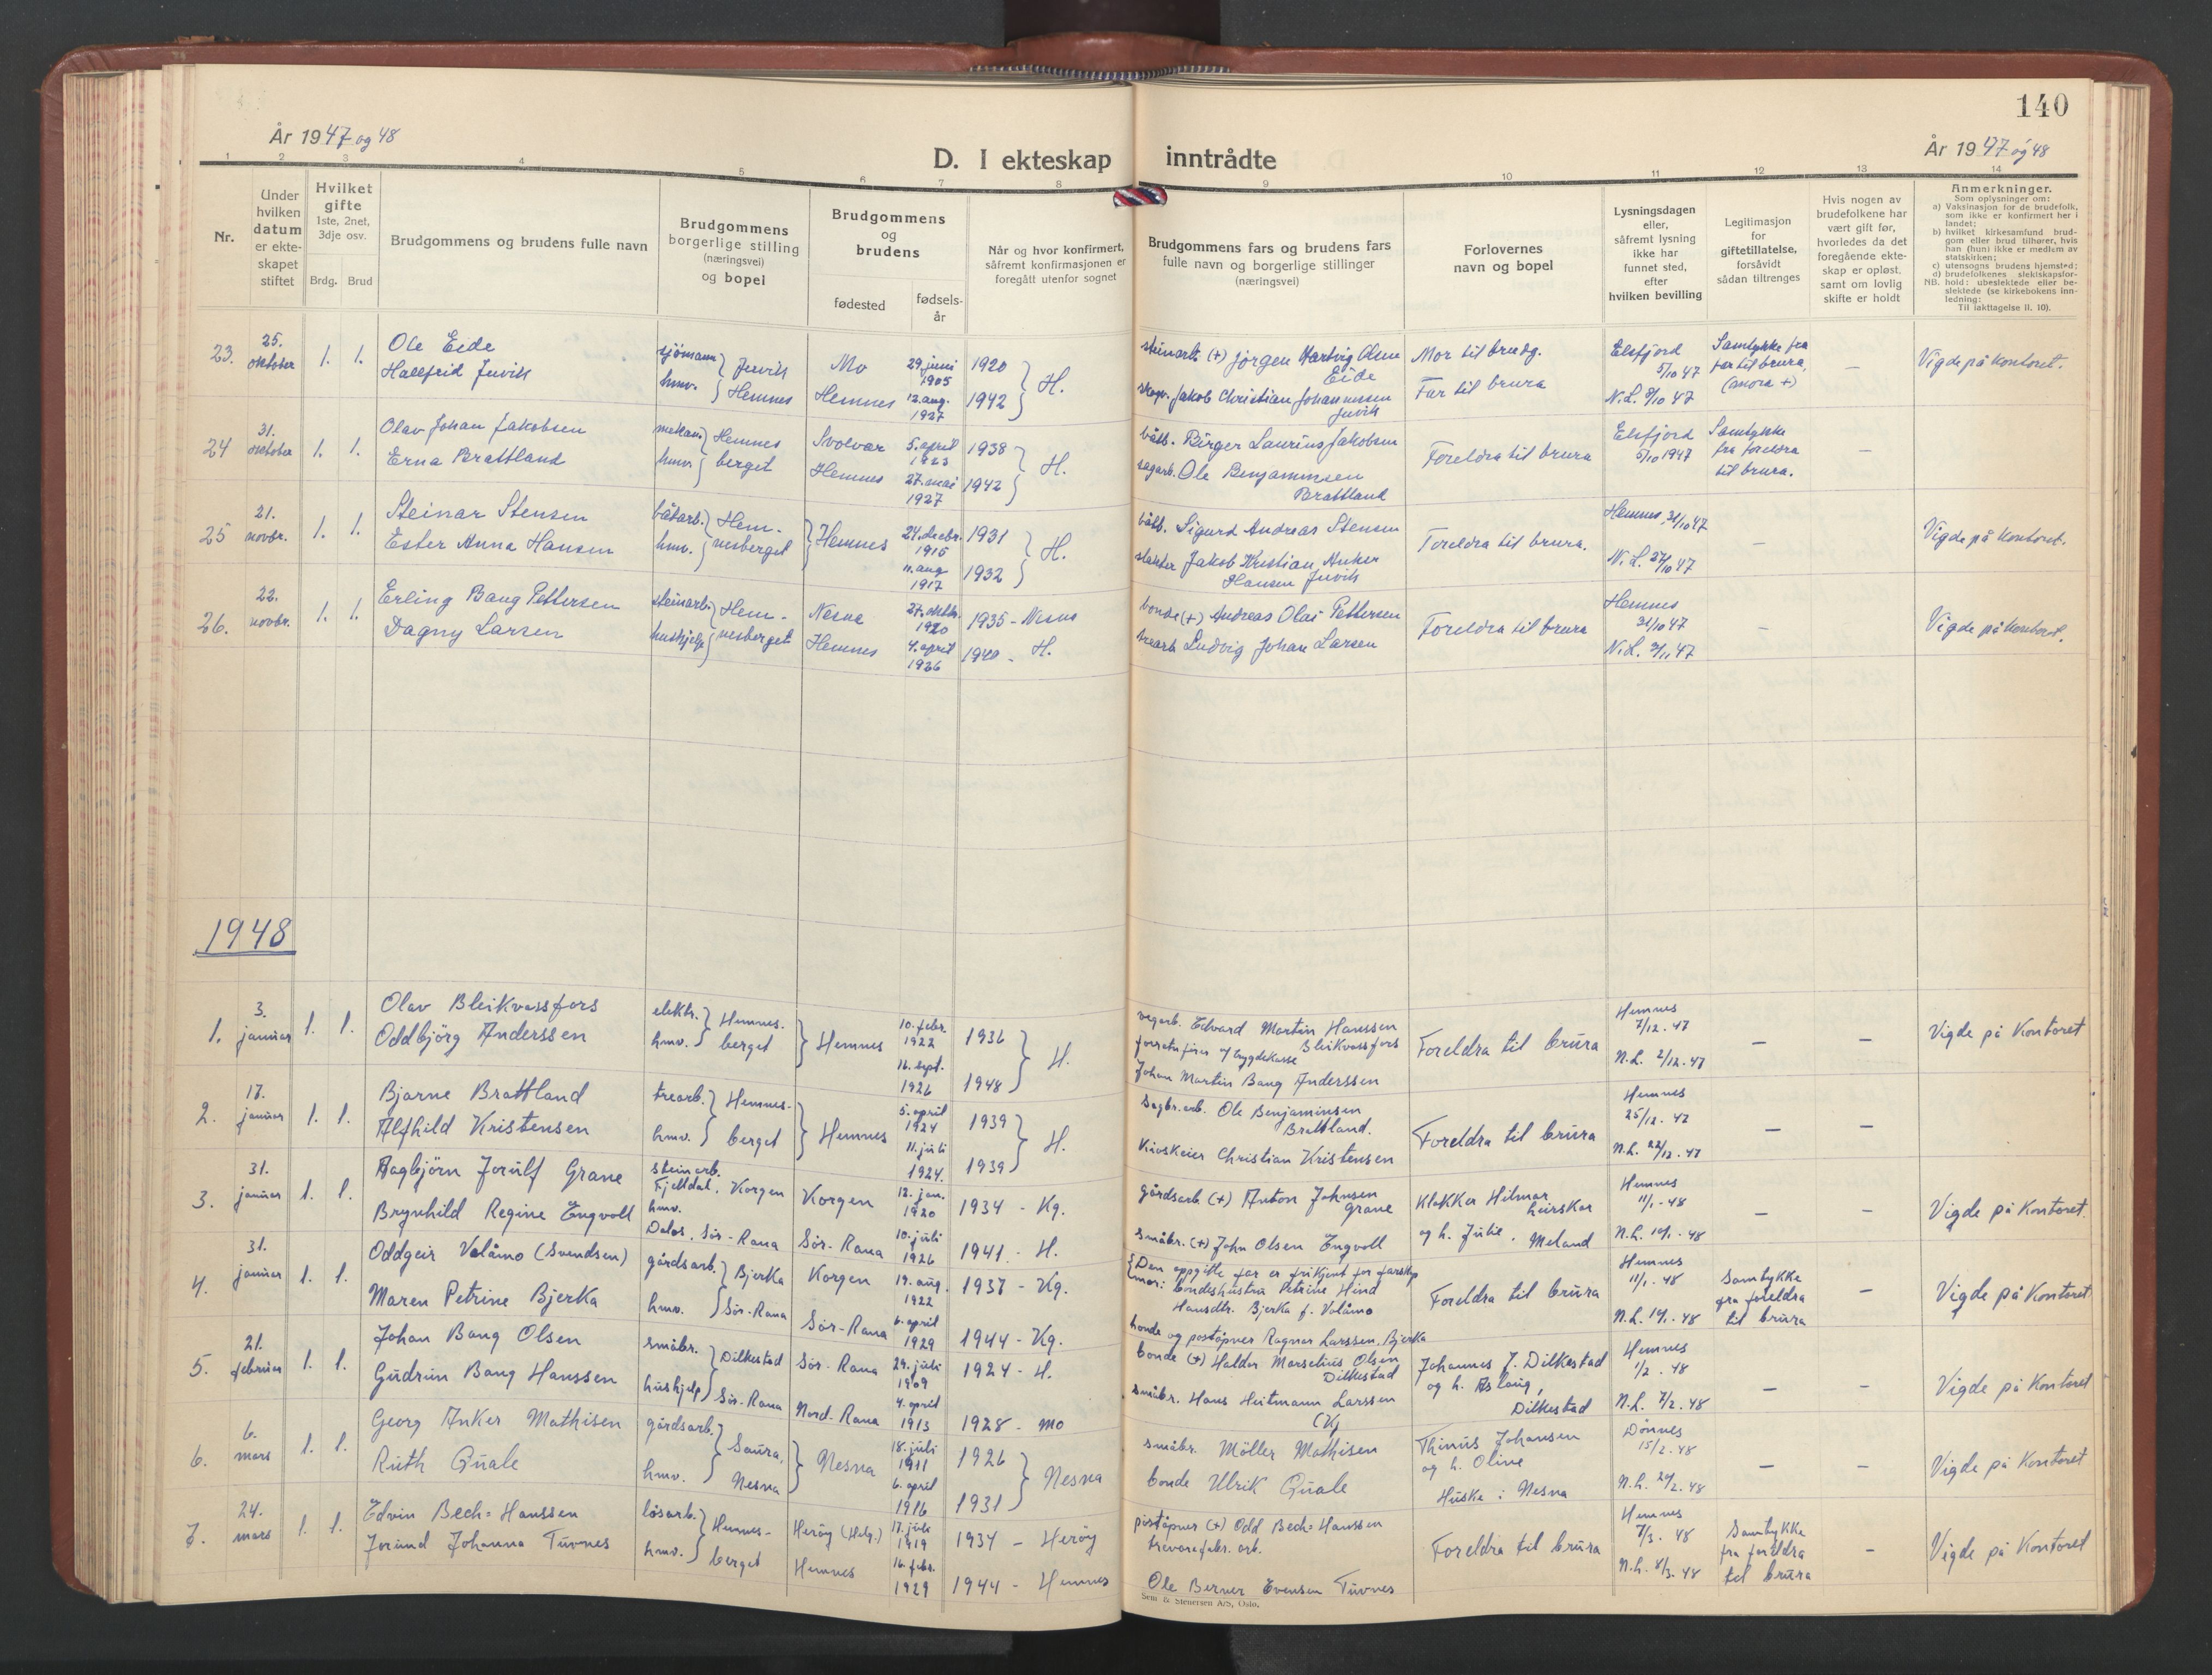 140
År 1947 og 48
År 1947 og 48
D. I ekteskap inntrådte
1 2 3 4 5 6 7 8 9 10 11 12 13 14
Nr.
Under
hvilken
datum
er ekte-
skapet
stiftet
Hvilket
gifte
1ste, 2net,
3dje osv.
Brdg. Brud
Brudgommens og brudens fulle navn
Brudgommens
borgerlige stilling
(næringsvei)
og bopel
Brudgommens
og
brudens
fødested
fødsels-
år
Når og hvor konfirmert,
såfremt konfirmasjonen er
foregått utenfor sognet
Brudgommens fars og brudens fars
fulle navn og borgerlige stillinger
(næringsvei)
Forlovernes
navn og bopel
Lysningsdagen
eller,
såfremt lysning
ikke har
funnet sted,
efter
hvilken bevilling
Legitimasjon
for
giftetillatelse,
forsåvidt
sådan tiltrenges
Hvis nogen av
brudefolkene har
vært gift før,
hvorledes da det
foregående ekte-
skap er opløst,
samt om lovlig
skifte er holdt
Anmerkninger.
Som oplysninger om:
a) Vaksinasjon for de brudefolk,
som ikke er konfirmert her i
landet;
b) hvilket kirkesamfund brud-
gom eller brud tilhører, hvis
han (hun) ikke er medlem av
statskirken;
c) utensogns brudens hjemsted;
d) brudefolkenes slektskapsfor-
NB. hold: ubeslektede eller be-
slektede (se kirkebokens inn-
ledning:
Til iakttagelse II. 10).
23. 25. oktober 1. 1.
Ole Eide
Hallfrid Juvik
sjömann
hmv.
Juvik
Hemnes
Mo
Hemnes
29. juni
1905
12. aug.
1927
1920
1942
H.
steinarb. (+) Jörgen Hartvig Olsen
Eide
Jakob Christian Johannessen
Juvik
Mor til brudg.
Far til brura
Elsfjord
5/10 47
N.L. 47
Samtykke fra
far til brura,
(mora +)
–
Vigde på kontoret.
24 31. oktober 1. 1.
Olav Johan Jakobsen
Erna Brattland
mekan.
hmv.
Hemnes
berget
Svolvær
Hemnes
5. april
1923
27. mai
1927
1938
1942
H.
båtb. Birger Laurius Jakobsen
sagarb. Ole Benjaminsen
Brattland
Foreldra til brura
Elsfjord
5/10 1947
Samtykke
fra foreldra
til brura.
–
25 21. novbr. 1. 1.
Steinar Stensen
Ester Anna Hansen
båtarb.
hmv.
Hem-
nesberget
Hemnes
24. decbr.
1916
11. aug
1917
1931
1932
H.
båtb. Sigurd Andreas Stensen
slakter Jakob Kristian Anker
Hansen Juvik
Foreldra til brura.
Hemnes 31/10 47
N.L. 27/10 47
–
Vigde på kontoret.
26. 22. novbr. 1. 1.
Erling Bang Pettersen
Dagny Larsen
steinarb.
hushjelp
Hem-
nesberget
Nesna
Hemnes
27. oktbr.
1920
4. april
1926
1935 - Nesna
1940 - H.
bonde (+) Andreas Olai Pettersen
trearb. Ludvig Johan Larsen
Foreldra til brura
Hemnes
31/10 47
N.L. 3/11 47
–
Vigde på kontoret.
1948
1. 3. januar 1. 1.
Olav Bleikvassfors
Oddbjörg Anderssen
elektr.
hmv.
Hemnes-
berget
Hemnes
10. febr.
1922
16. sept.
1926
1936
1948
H.
vegarb. Edvard Martin Hanssen
Bleikvassfors
forretn.förer v/ bygdekasse
Johan Martin Bang Anderssen
Foreldra til brura
Hemnes
7/12. 47
N.L. 2/12. 47
–
–
Vigde på Kontoret
2. 17. januar 1. 1.
Bjarne Brattland
Alfhild Kristensen
trearb.
hmv.
Hemnes-
berget
Hemnes
5. april
1924
11. juli
1924.
1939
1939
H.
Sagbr.arb. Ole Benjaminsen
Brattland.
Kioskeier Christian Kristensen
Foreldra til brura
Hemnes
25/12. 47
N.L. 22/12. 47
–
–
3. 31. januar 1. 1.
Dagbjörn Jorulf Grane
Brynhild Regine Engvoll
steinarb.
Fjelldal, Korgen
hmv.
Dalos, Sör-Rana
Korgen
Sör-Rana
12. jan.
1920
10. juli
1926
1934 - Kg.
1941 - H.
gårdsarb. (+) Anton Johnsen
Grane
småbr. (+) John Olsen Engvoll
Klokker Hilmar
Leirskar
og h. Julie, Meland
Hemnes
11/1. 48
N.L. 14/1. 48
–
–
Vigde på Kontoret.
4. 31. januar 1. 1.
Oddgeir Valåmo (Svendsen)
Maren Petrine Bjerka
gårdsarb.
hmv.
Bjerka
Sör-Rana
Korgen
Sör-Rana
19. aug.
1922
6. april
1929
1937 - Kg.
1944 - Kg.
Den oppgitte far er frikjent for farskap
mor: bondeshustru Petrine Hind
Hansdtr. Bjerka f. Valåmo
bonde og postöpner Ragnar Larssen, Bjerka
Foreldra til brura
Hemnes
11/1. 48
N.L. 14/1. 48
Samtykke
fra foreldra
til brura
–
Vigde på Kontoret
5. 21. februar 1. 1.
Johan Bang Olsen
Gudrun Bang Hanssen
småbr.
hushjelp
Dilkestad
Sör-Rana
Sör-Rana
Nord-Rana
29. juli
1909
4. april
1913
1924 - H.
1928 - Mo
bonde (+) Haldor Marselius Olsen
Dilkestad
småbr. Hans Heitmann Larssen
Johannes J. Dilkestad
og h. Aslaug,
Dilkestad
Hemnes
1/2. 48
N.L. 7/2. 48
–
–
Vigde på Kontoret
6. 6. mars 1. 1.
Georg Anker Mathisen
Ruth Quale
gårdsarb.
hmv.
Saura,
Nesna
Nesna
18. juli
1911
6. april
1916
1926
1931
Nesna
småbr. Möller Mathisen
bonde Ulrik Quale
Thinus Johansen
og h. Oline
Huske i Nesna
Dönnes
15/2. 48
N.L. 24/2. 48
–
–
Vigde på Kontoret
7. 24. mars 1. 1.
Edvin Bech-Hanssen
Jorund Johanna Tuvnes
lösarb.
hmv.
Hemnes-
berget
Heröy (Helg.)
Hemnes
17. juli
1919
16. febr.
1929
1934 - Heröy
1944 - Hemnes
postöpner (+) Odd Bech-Hanssen
trevarefabr. arb.
Ole Berner Evensen Tuvnes
Foreldra til brura
Hemnes
7/3. 48
N.L. 8/3. 48
Samtykke
fra foreldra
til brura
–
Vigde på Kontoret
Sem & Stenersen A/S, Oslo.